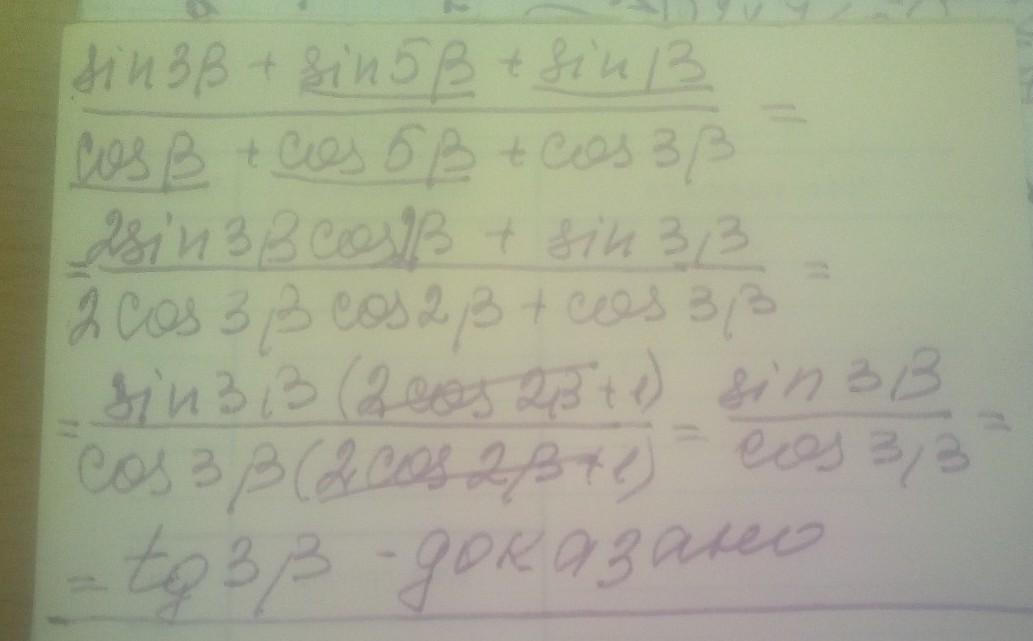 sin3β + sin5β + sinβ
=
cosβ + cos5β + cos3β
2sin3βcos2β + sin3β
= =
2cos3βcos2β + cos3β
sin3β(2cos2β+1) sin3β
= = =
cos3β(2cos2β+1) cos3β
= tg3β - доказано